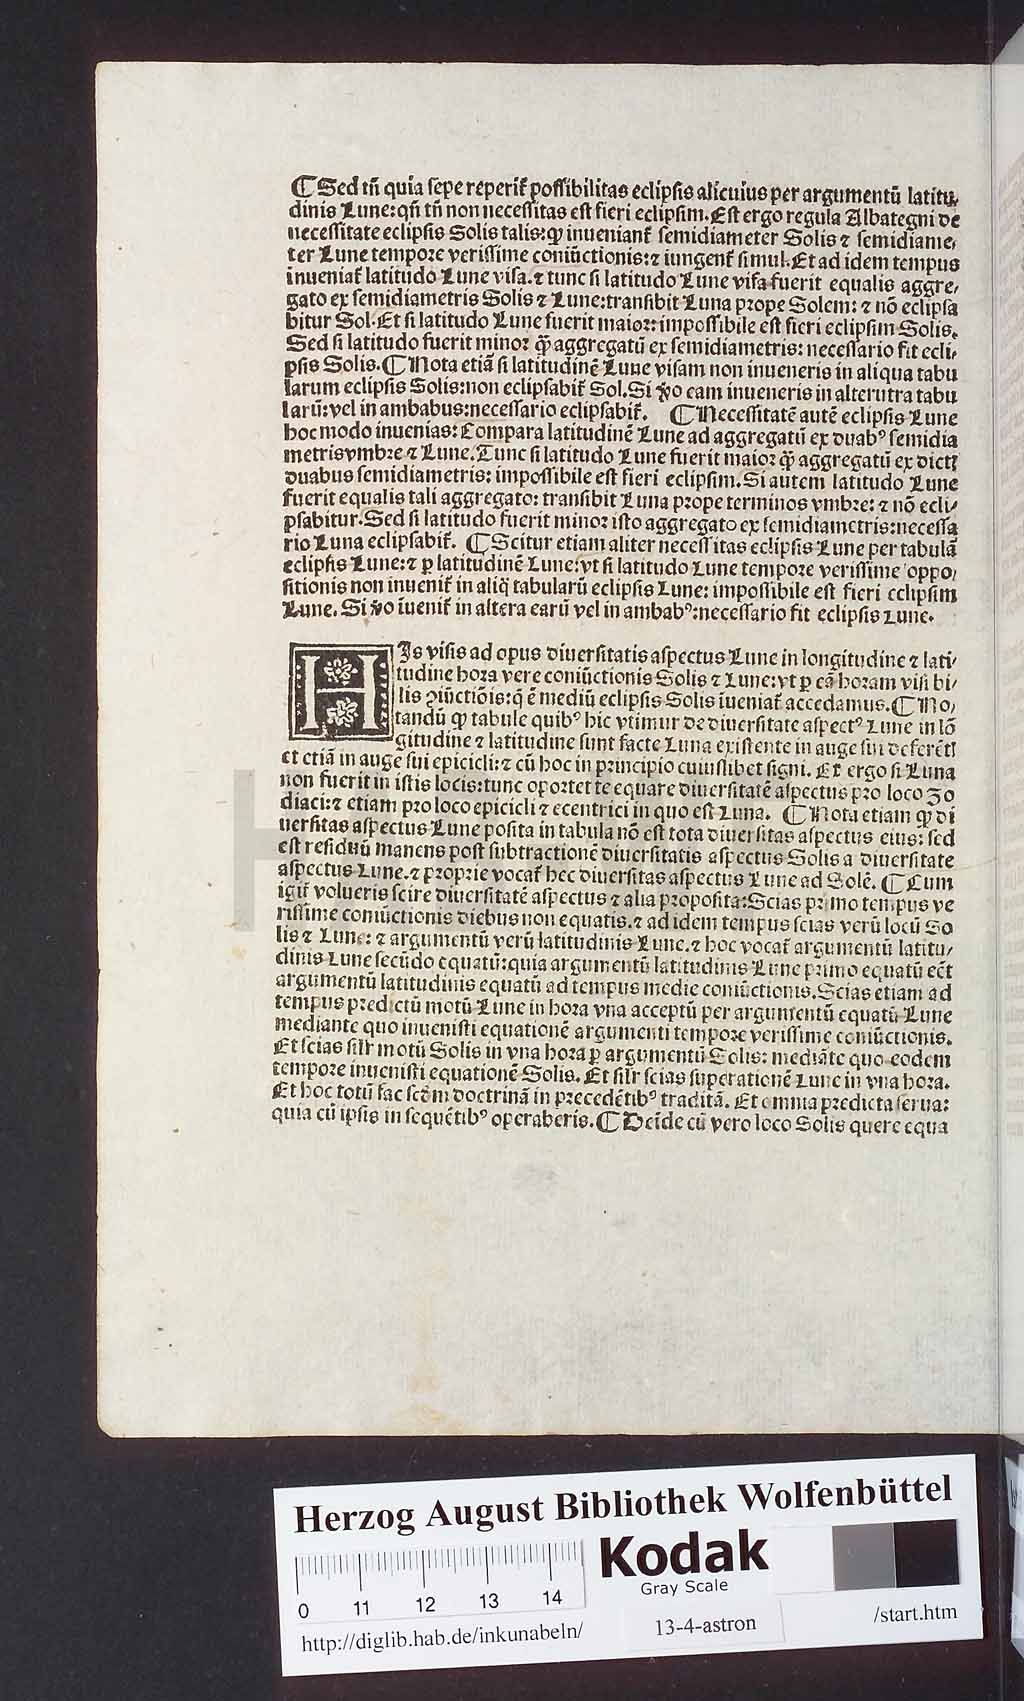 ¶ Sed tñ quia sepe reperit᷑ possibilitas eclipsis alicuius per argumentū latitu-
dinis Lune: qñ tñ non necessitas est fieri eclipsim. Est ergo regula Albategni de
necessitate eclipsis Solis talis: ꝙ inueniant᷑ semidiameter Solis ⁊ semidiame-
ter Lune tempore verissime coniūctionis: ⁊ iungent᷑ simul. Et ad idem tempus
inueniat᷑ latitudo Lune visa. ⁊ tunc si latitudo Lune visa fuerit equalis aggre-
gato ex semidiametris Solis ⁊ Lune: transibit Luna prope Solem: ⁊ nō eclipsa
bitur Sol. Et si latitudo Lune fuerit maior: impossibile est fieri eclipsim Solis.
Sed si latitudo fuerit minor ꝙ̃ aggregatū ex semidiametris: necessario fit ecli-
psis Solis. ¶ Nota etiā si latitudinē Lune visam non inueneris in aliqua tabu
larum eclipsis Solis: non eclipsabit᷑ Sol. Si ꝟo eam inueneris in alterutra tabu
larū: vel in ambabus: necessario eclipsabit᷑. ¶ Necessitatē autē eclipsis Lune
hoc modo inuenias: Compara latitudinē Lune ad aggregatū ex duabꝰ semidia
metris vmbre ⁊ Lune. Tunc si latitudo Lune fuerit maior ꝙ̃ aggregatū ex dictꝭ
duabus semidiametris: impossibile est fieri eclipsim. Si autem latitudo Lune
fuerit equalis tali aggregato: transibit Luna prope terminos vmbre: ⁊ nō ecli-
psabitur. Sed si latitudo fuerit minor isto aggregato ex semidiametris: necessa
rio Luna eclipsabit᷑. ¶ Scitur etiam aliter necessitas eclipsis Lune per tabulā
eclipsis Lune: ⁊ ꝑ latitudinē Lune: vt si latitudo Lune tempore verissime oppo-
sitionis non inuenit᷑ in aliq̃ tabularū eclipsis Lune: impossibile est fieri eclipsim
Lune. Si ꝟo īuenit᷑ in altera earū vel in ambabꝰ: necessario fit eclipsis Lune.
HIs visis ad opus diuersitatis aspectus Lune in longitudine ⁊ lati-
tudine hora vere coniūctionis Solis ⁊ Lune: vt ꝑ eā horam visi bi-
lis ꝯiūctiōis: q̃ ē mediū eclipsis Solis īueniat᷑ accedamus. ¶ No-
tandū ꝙ tabule quibꝰ hic vtimur de diuersitate aspectꝰ Lune in lō
gitudine ⁊ latitudine sunt facte Luna existente in auge sui deferētꝭ
et etiā in auge sui epicicli: ⁊ cū hoc in principio cuiuslibet signi. Et ergo si Luna
non fuerit in istis locis: tunc oportet te equare diuersitatē aspectus pro loco zo
diaci: ⁊ etiam pro loco epicicli ⁊ ecentrici in quo est Luna. ¶ Nota etiam ꝙ di
uersitas aspectus Lune posita in tabula nō est tota diuersitas aspectus eius: sed
est residuū manens post subtractionē diuersitatis aspectus Solis a diuersitate
aspectus Lune. ⁊ proprie vocat᷑ hec diuersitas aspectus Lune ad Solē. ¶ Cum
igit᷑ volueris scire diuersitatē aspectus ⁊ alia proposita: Scias primo tempus ve
rissime coniūctionis diebus non equatis. ⁊ ad idem tempus scias verū locū So
lis ⁊ Lune: ⁊ argumentū verū latitudinis Lune. ⁊ hoc vocat᷑ argumentū latitu-
dinis Lune secūdo equatū: quia argumentū latitudinis Lune primo equatū eēt
argumentū latitudinis equatū ad tempus medie coniūctionis. Scias etiam ad
tempus predictū motū Lune in hora vna acceptū per argumentū equatū Lune
mediante quo inuenisti equationē argumenti tempore verissime coniūctionis.
Et scias silr̃ motū Solis in vna hora ꝑ argumentū Solis: mediāte quo eodem
tempore inuenisti equationē Solis. Et silr̃ scias superationē Lune in vna hora.
Et hoc totū fac scd̃m doctrinā in precedētibꝰ traditā. Et omnia predicta serua:
quia cū ipsis in sequētibꝰ operaberis. ¶ Deīde cū vero loco Solis quere equa
HAB
Herzog August Bibliothek Wolfenbüttel
Kodak
Gray Scale
0 11 12 13 14
http://diglib.hab.de/inkunabeln/
13-4-astron
/start.htm